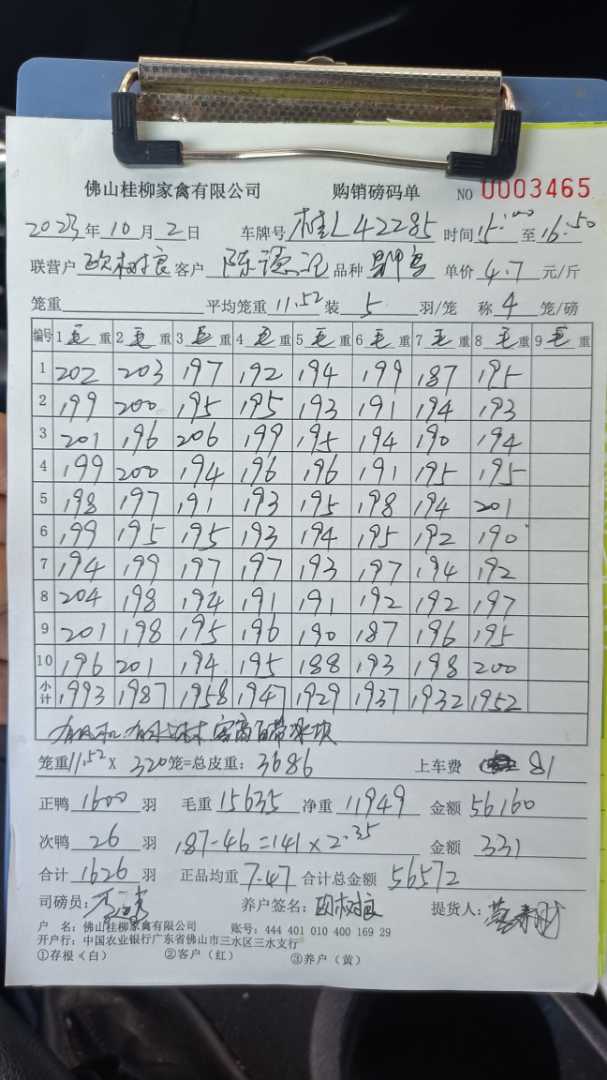 佛山桂柳家禽有限公司 购销磅码单 NO 0003465
2023年10月2日 车牌号 桂L42285 时间15:00至16:50
联营户 欧树良 客户 陈德 品种 单价4.7元/斤
笼重 平均笼重11.52装5羽/笼 称4笼/磅
编号 1毛重 2毛重 3毛重 4毛重 5毛重 6毛重 7毛重 8毛重 9毛重
1 202 203 197 192 194 199 187 195
2 199 200 195 195 193 191 194 193
3 201 196 206 199 195 194 190 194
4 199 200 194 196 196 191 195 195
5 198 197 191 193 195 198 194 201
6 199 195 195 193 194 195 192 190
7 194 199 197 197 193 197 194 192
8 204 198 194 191 191 192 192 197
9 201 198 195 196 190 187 196 195
10 196 201 194 195 188 193 198 200
小计 1993 1987 1958 1947 1929 1937 1932 1952
客商自带冰块
笼重11.52× 320笼=总皮重: 3686 上车费 81
正鸭1600羽 毛重15635 净重11949 金额56160
次鸭26羽 187-46=141×2.35 金额331
合计1626羽 正品均重7.47 合计总金额56572
司磅员: 养户签名: 欧树良 提货人:
户 名: 佛山桂柳家禽有限公司 账号: 444 401 010 400 169 29
开户行: 中国农业银行广东省佛山市三水区三水支行
①存根(白) ②客户(红) ③养户(黄)